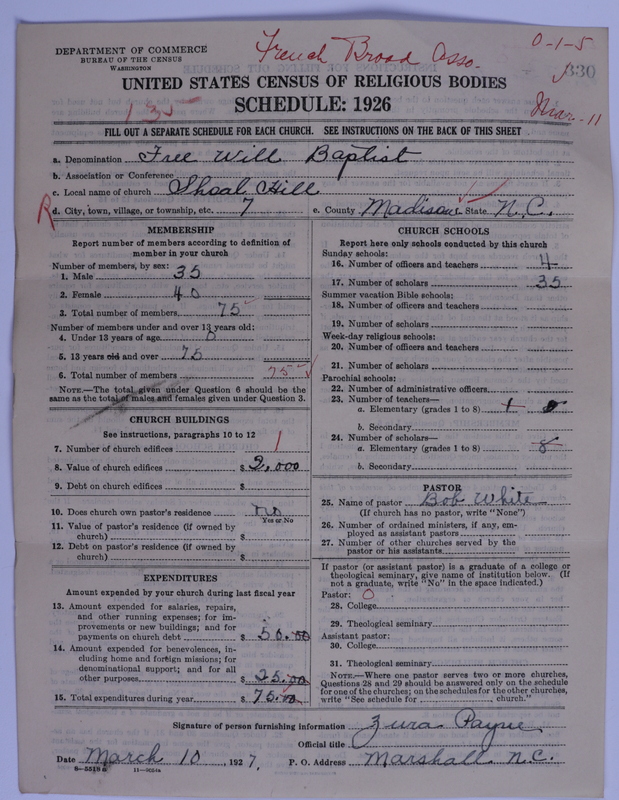 DEPARTMENT OF COMMERCE
BUREAU OF THE CENSUS
WASHINGTON
French Broad Asso.
0-1-5
330
UNITED STATES CENSUS OF RELIGIOUS BODIES
SCHEDULE: 1926
135
Mar-11
FILL OUT A SEPARATE SCHEDULE FOR EACH CHURCH. SEE INSTRUCTIONS ON THE BACK OF THIS SHEET
a. Denomination Free Will Baptist
b. Association or Conference
c. Local name of church Shoal Hill
R d. City, town, village, or township, etc. 7 e. County Madison State N.C.
MEMBERSHIP
Report number of members according to definition of member in your church
Number of members, by sex:
1. Male 35
2. Female 40
3. Total number of members 75
Number of members under and over 13 years old:
4. Under 13 years of age 0
5. 13 years old and over 75
6. Total number of members 75
NOTE.—The total given under Question 6 should be the same as the total of males and females given under Question 3.
CHURCH BUILDINGS
See instructions, paragraphs 10 to 12
7. Number of church edifices 1
8. Value of church edifices $ 2,000
9. Debt on church edifices $
10. Does church own pastor's residence No
Yes or No
11. Value of pastor's residence (if owned by church) $
12. Debt on pastor's residence (if owned by church) $
EXPENDITURES
Amount expended by your church during last fiscal year
13. Amount expended for salaries, repairs, and other running expenses; for improvements or new buildings; and for payments on church debt $ 50.00
14. Amount expended for benevolences, including home and foreign missions; for denominational support; and for all other purposes $ 25.00
15. Total expenditures during year $ 75.00
CHURCH SCHOOLS
Report here only schools conducted by this church
Sunday schools:
16. Number of officers and teachers 4
17. Number of scholars 35
Summer vacation Bible schools:
18. Number of officers and teachers
19. Number of scholars
Week-day religious schools:
20. Number of officers and teachers
21. Number of scholars
Parochial schools:
22. Number of administrative officers
23. Number of teachers—
a. Elementary (grades 1 to 8) 1
b. Secondary
24. Number of scholars—
a. Elementary (grades 1 to 8) 8
b. Secondary
PASTOR
25. Name of pastor Bob White
(If church has no pastor, write "None")
26. Number of ordained ministers, if any, employed as assistant pastors
27. Number of other churches served by the pastor or his assistants
If pastor (or assistant pastor) is a graduate of a college or theological seminary, give name of institution below. (If not a graduate, write "No" in the space indicated.)
Pastor: 0
28. College
29. Theological seminary
Assistant pastor:
30. College
31. Theological seminary
NOTE.—Where one pastor serves two or more churches, Questions 28 and 29 should be answered only on the schedule for one of the churches; on the schedules for the other churches, write "See schedule for church."
Signature of person furnishing information Zura Payne
Official title
Date March 10, 1927. P. O. Address Marshall N.C.
8-5518a 11-9051a